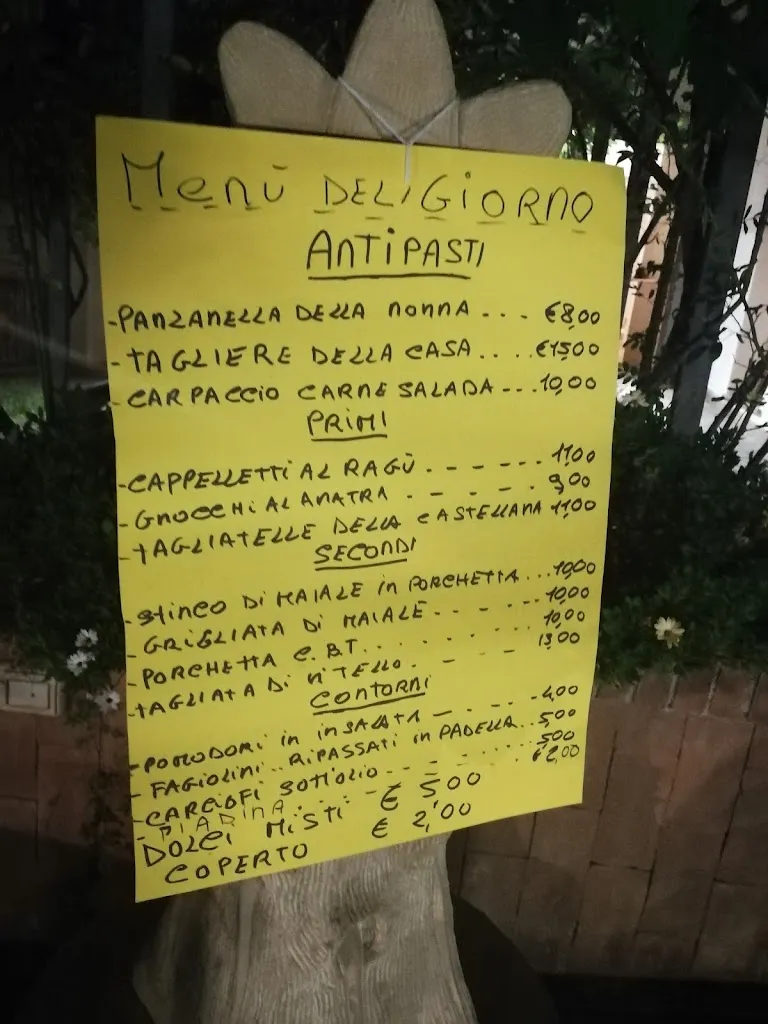 Menù DEL GIORNO
ANTIPASTI
- PANZANELLA DELLA NONNA ... €8,00
- TAGLIERE DELLA CASA .... €15,00
- CARPACCIO CARNE SALADA --- 10,00
PRIMI
- CAPPELLETTI AL RAGÙ . - - - - - . 11,00
- GNOCCHI AL ANATRA . - . - . - . 9,00
- TAGLIATELLE DELLA CASTELLANA 11,00
SECONDI
- STINCO DI MAIALE in PORCHETTA ... 10,00
- GRIGLIATA DI MAIALE - - . - . - 10,00
- PORCHETTA C.B.T. . . . . . . . 10,00
- TAGLIATA DI VITELLO . - - . 13,00
CONTORNI
- POMODORI in INSALATA - - . - . - 4,00
- FAGIOLINI RIPASSATI in PADELLA ... 5,00
- CARCIOFI SOTTOLIO - - . - . . . . 5,00
- PIADINA . . . - € 2,00
DOLCI MISTI € 5,00
COPERTO € 2,00